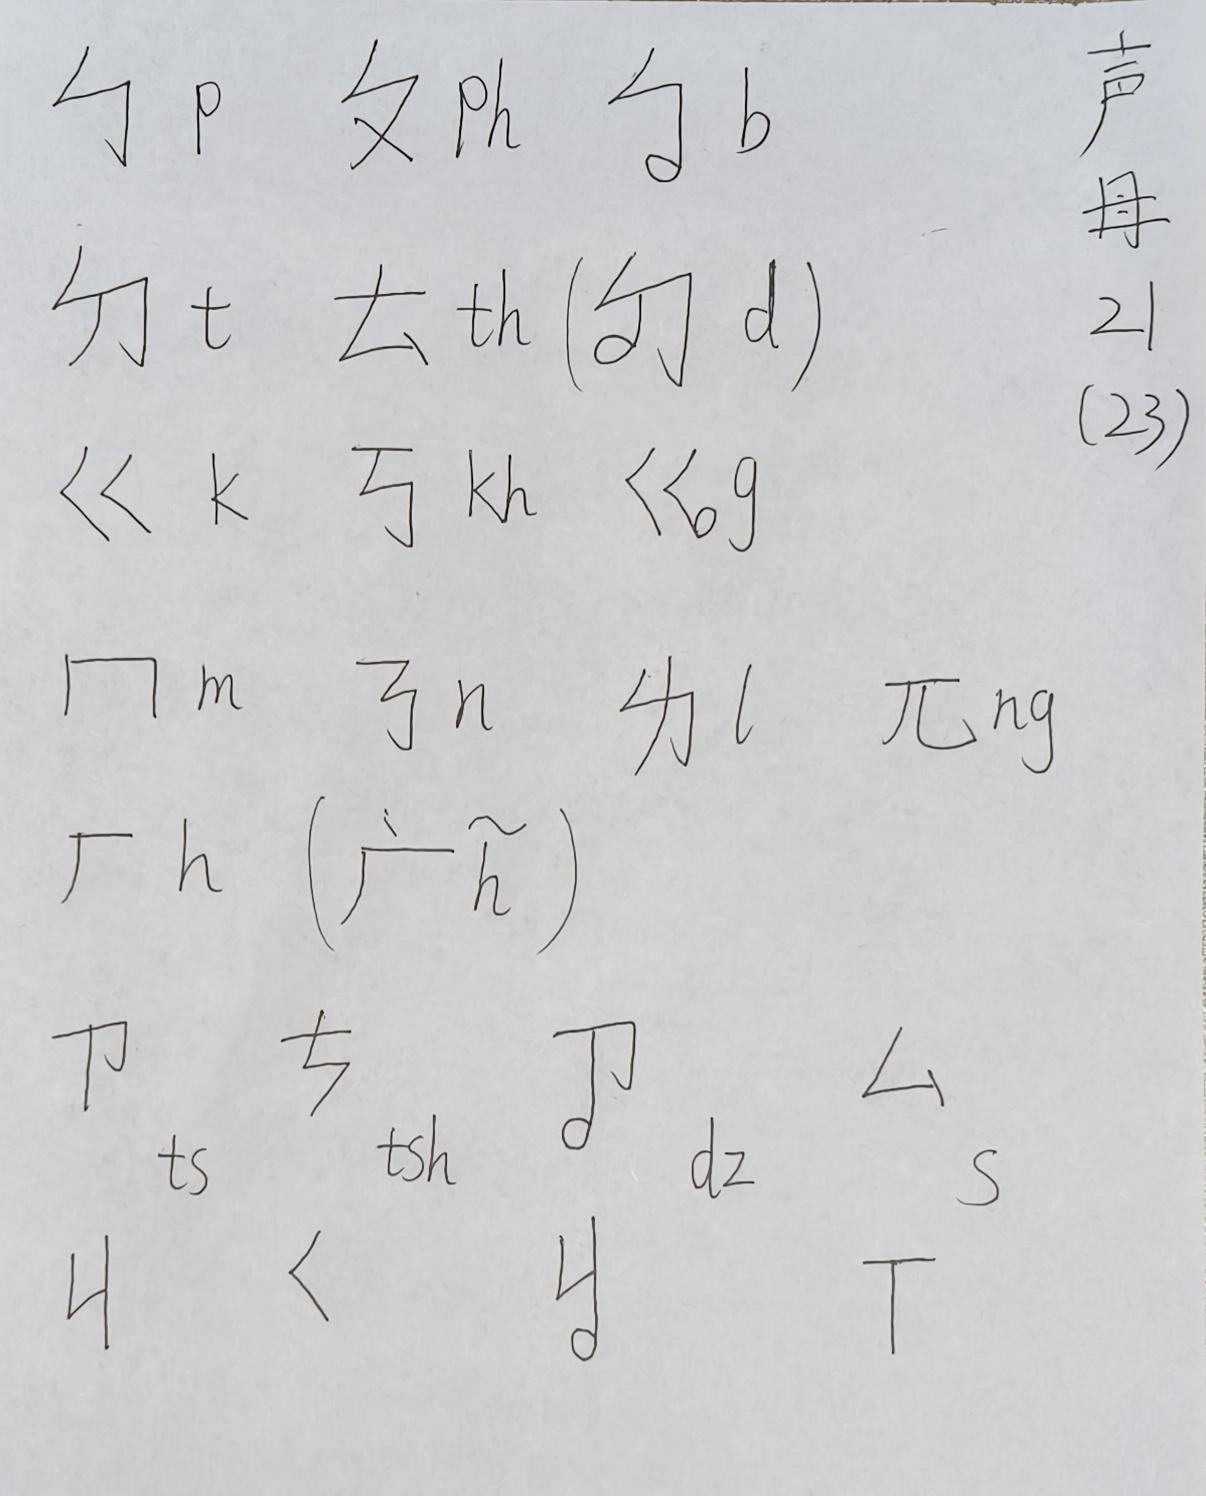 ㄅ p ㄆ ph ㆠ b
ㄉ t ㄊ th (ㆵ d)
ㄍ k ㄎ kh ㆣ g
ㄇ m ㄋ n ㄌ l ㄫ ng
ㄏ h ( h̃ )
ㄗ ts ㄘ tsh ㆡ dz ㄙ s
ㄐ ㄑ ㆢ ㄒ
声母
21
(23)